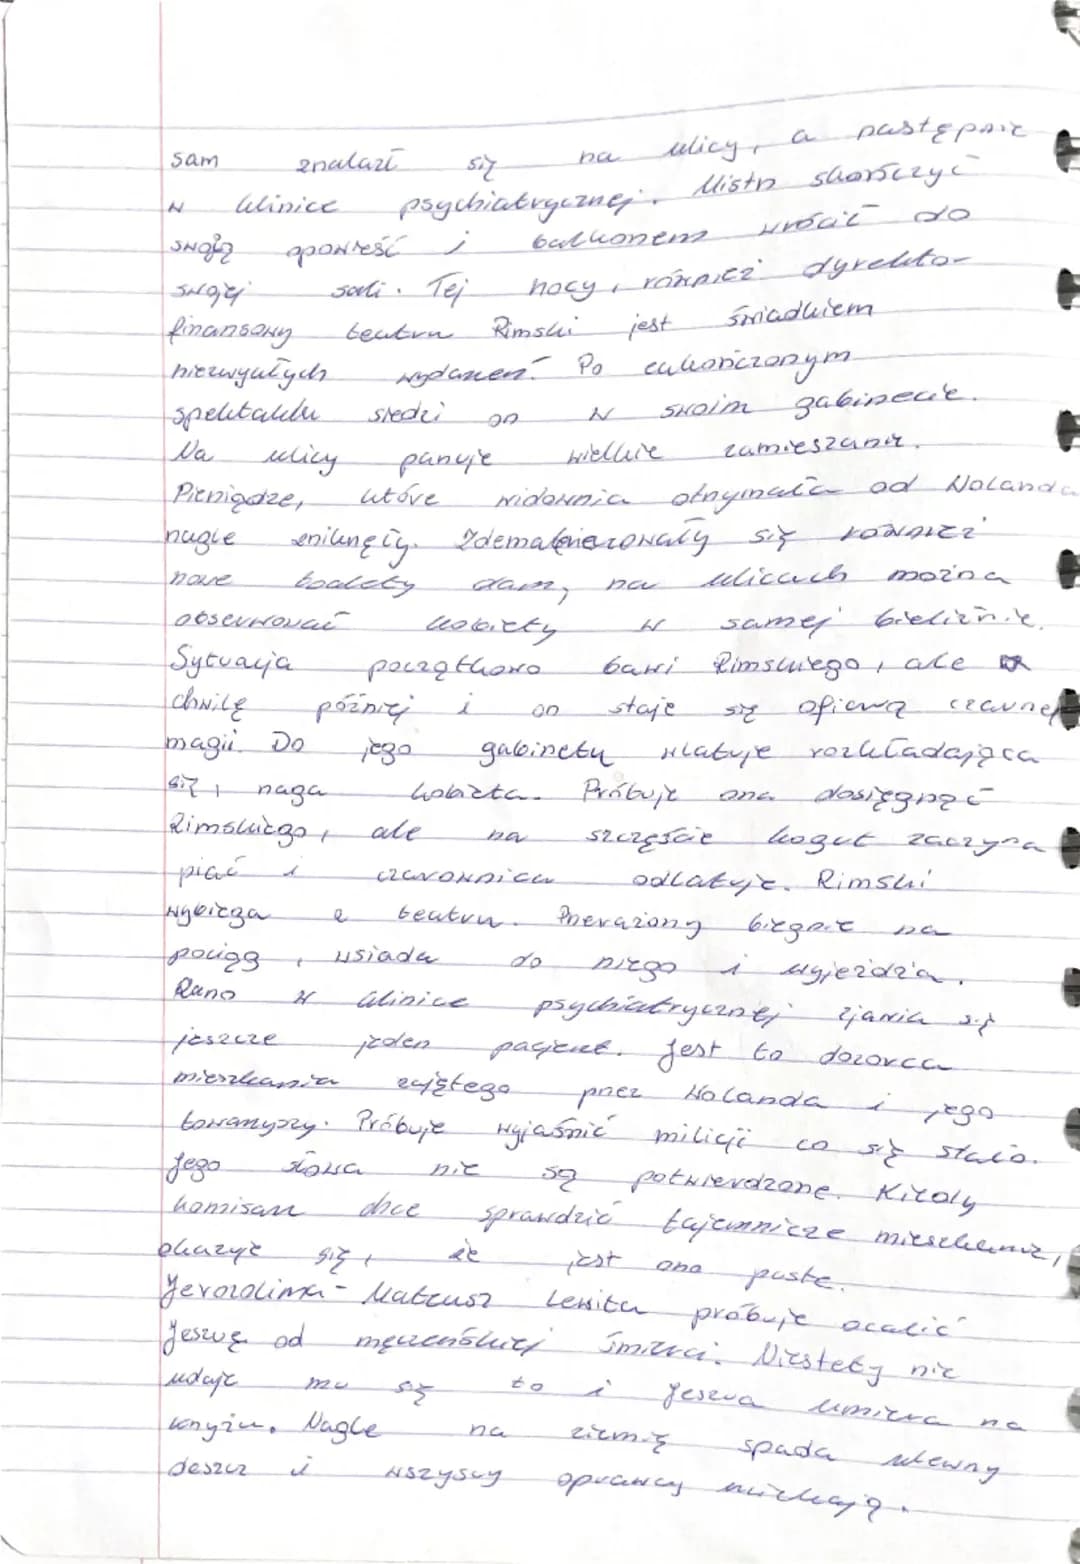 sam znalazł się na ulicy, a następnie
w klinice psychiatrycznej. Mistrz skończyć
swoją opowieść i balkonem wrócił do
swojej sali. Tej nocy, również dyrektor
finansowy teatru Rimski jest świadkiem
niezwykłych wydarzeń. Po zakończonym
spektaklu siedzi on w swoim gabinecie.
Na ulicy panuje wielkie zamieszanie.
Pieniądze, które widownia otrzymała od Wolanda
nagle zniknęły. Zdematerializowały się również
nowe toalety dam, na ulicach można
obserwować kobiety w samej bieliźnie.
Sytuacja początkowo bawi Rimskiego, ale
chwilę później i on staje się ofiarą czarnej
magii. Do jego gabinetu wlatuje rozkładająca
się, naga kobieta. Próbuje ona dosięgnąć
Rimskiego, ale na szczęście kogut zaczyna
piać i czarownica odlatuje. Rimski
wybiega z teatru. Przerażony biegnie na
pociąg, wsiada do niego i wyjeżdża.
Rano w klinice psychiatrycznej zjawia się
jeszcze jeden pacjent. Jest to dozorca
mieszkania zajętego przez Wolanda i jego
towarzyszy. Próbuje wyjaśnić milicji co się stało.
Jego słowa nie są potwierdzone. Kiedy
komisarz chce sprawdzić tajemnicze mieszkanie,
okazuje się, że jest ono puste.
Jerozolima - Mateusz Lewita próbuje ocalić
Jeszuę od męczeńskiej śmierci. Niestety nie
udaje mu się to i Jeszua umiera na
krzyżu. Nagle na ziemię spada ulewny
deszcz i wszyscy oprawcy uciekają.